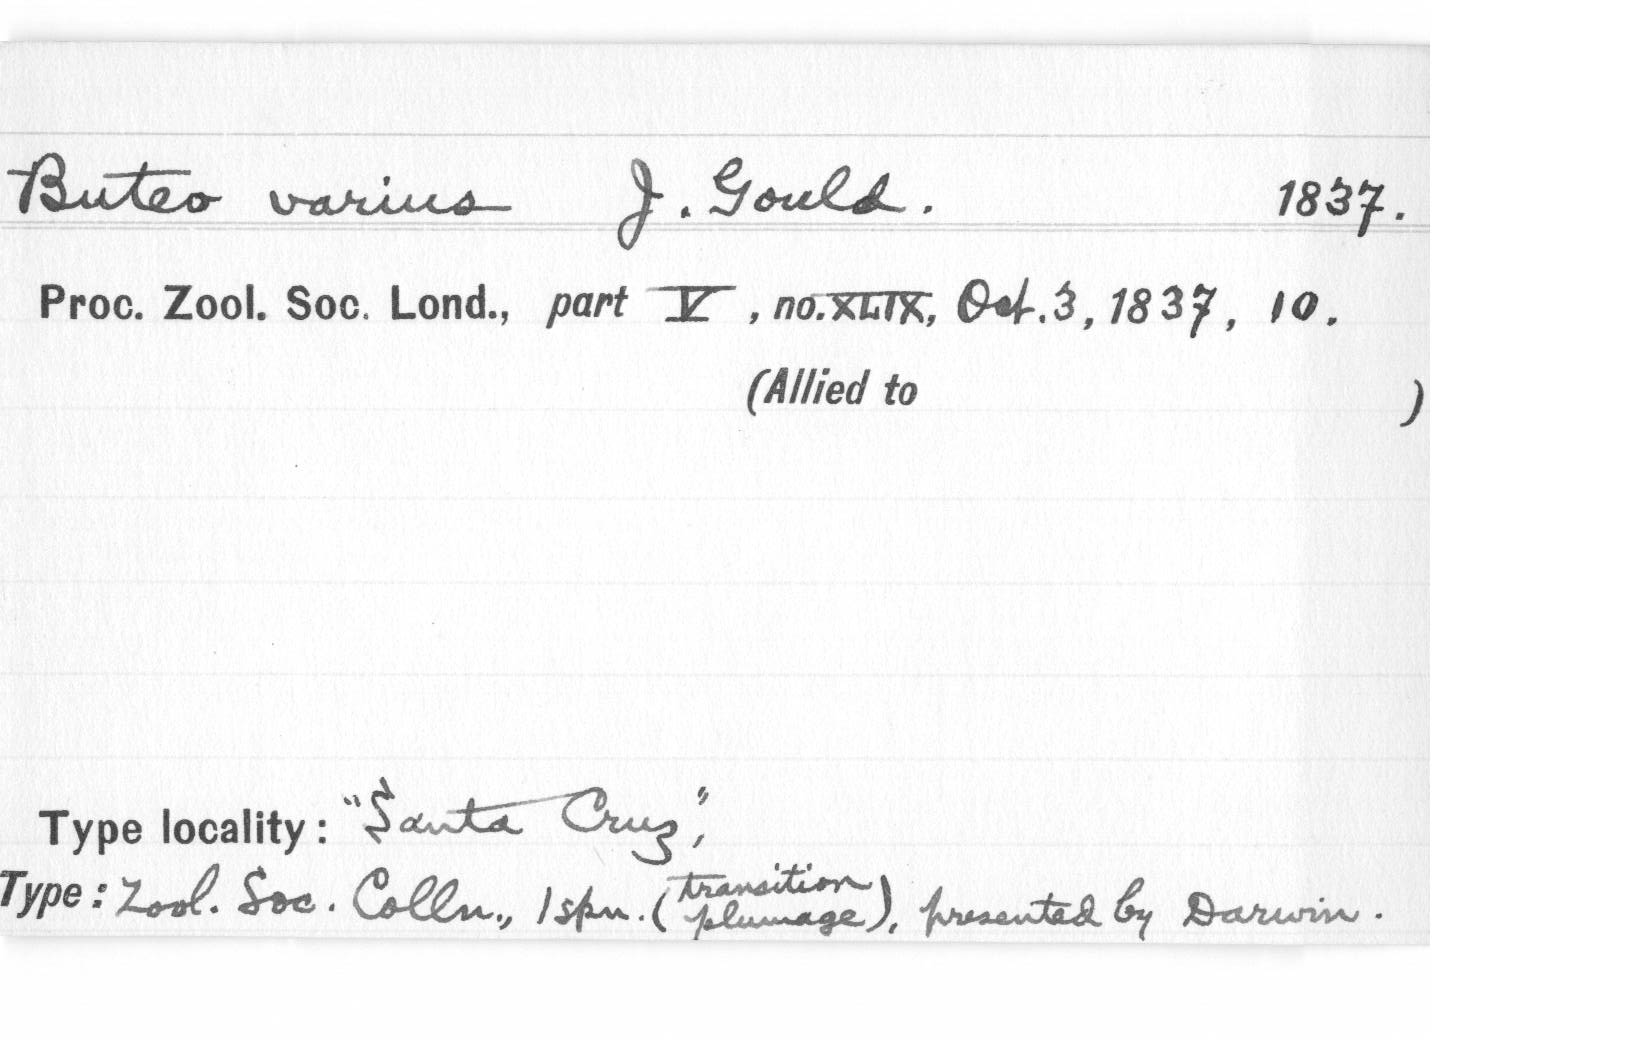 Buteo varius J. Gould. 1837.
Proc. Zool. Soc. Lond., part V, no. XLIX, Oct. 3, 1837, 10.
(Allied to )
Type locality: "Santa Cruz",
Type: Zool. Soc. Colln., 1 spn. (transition plumage), presented by Darwin.